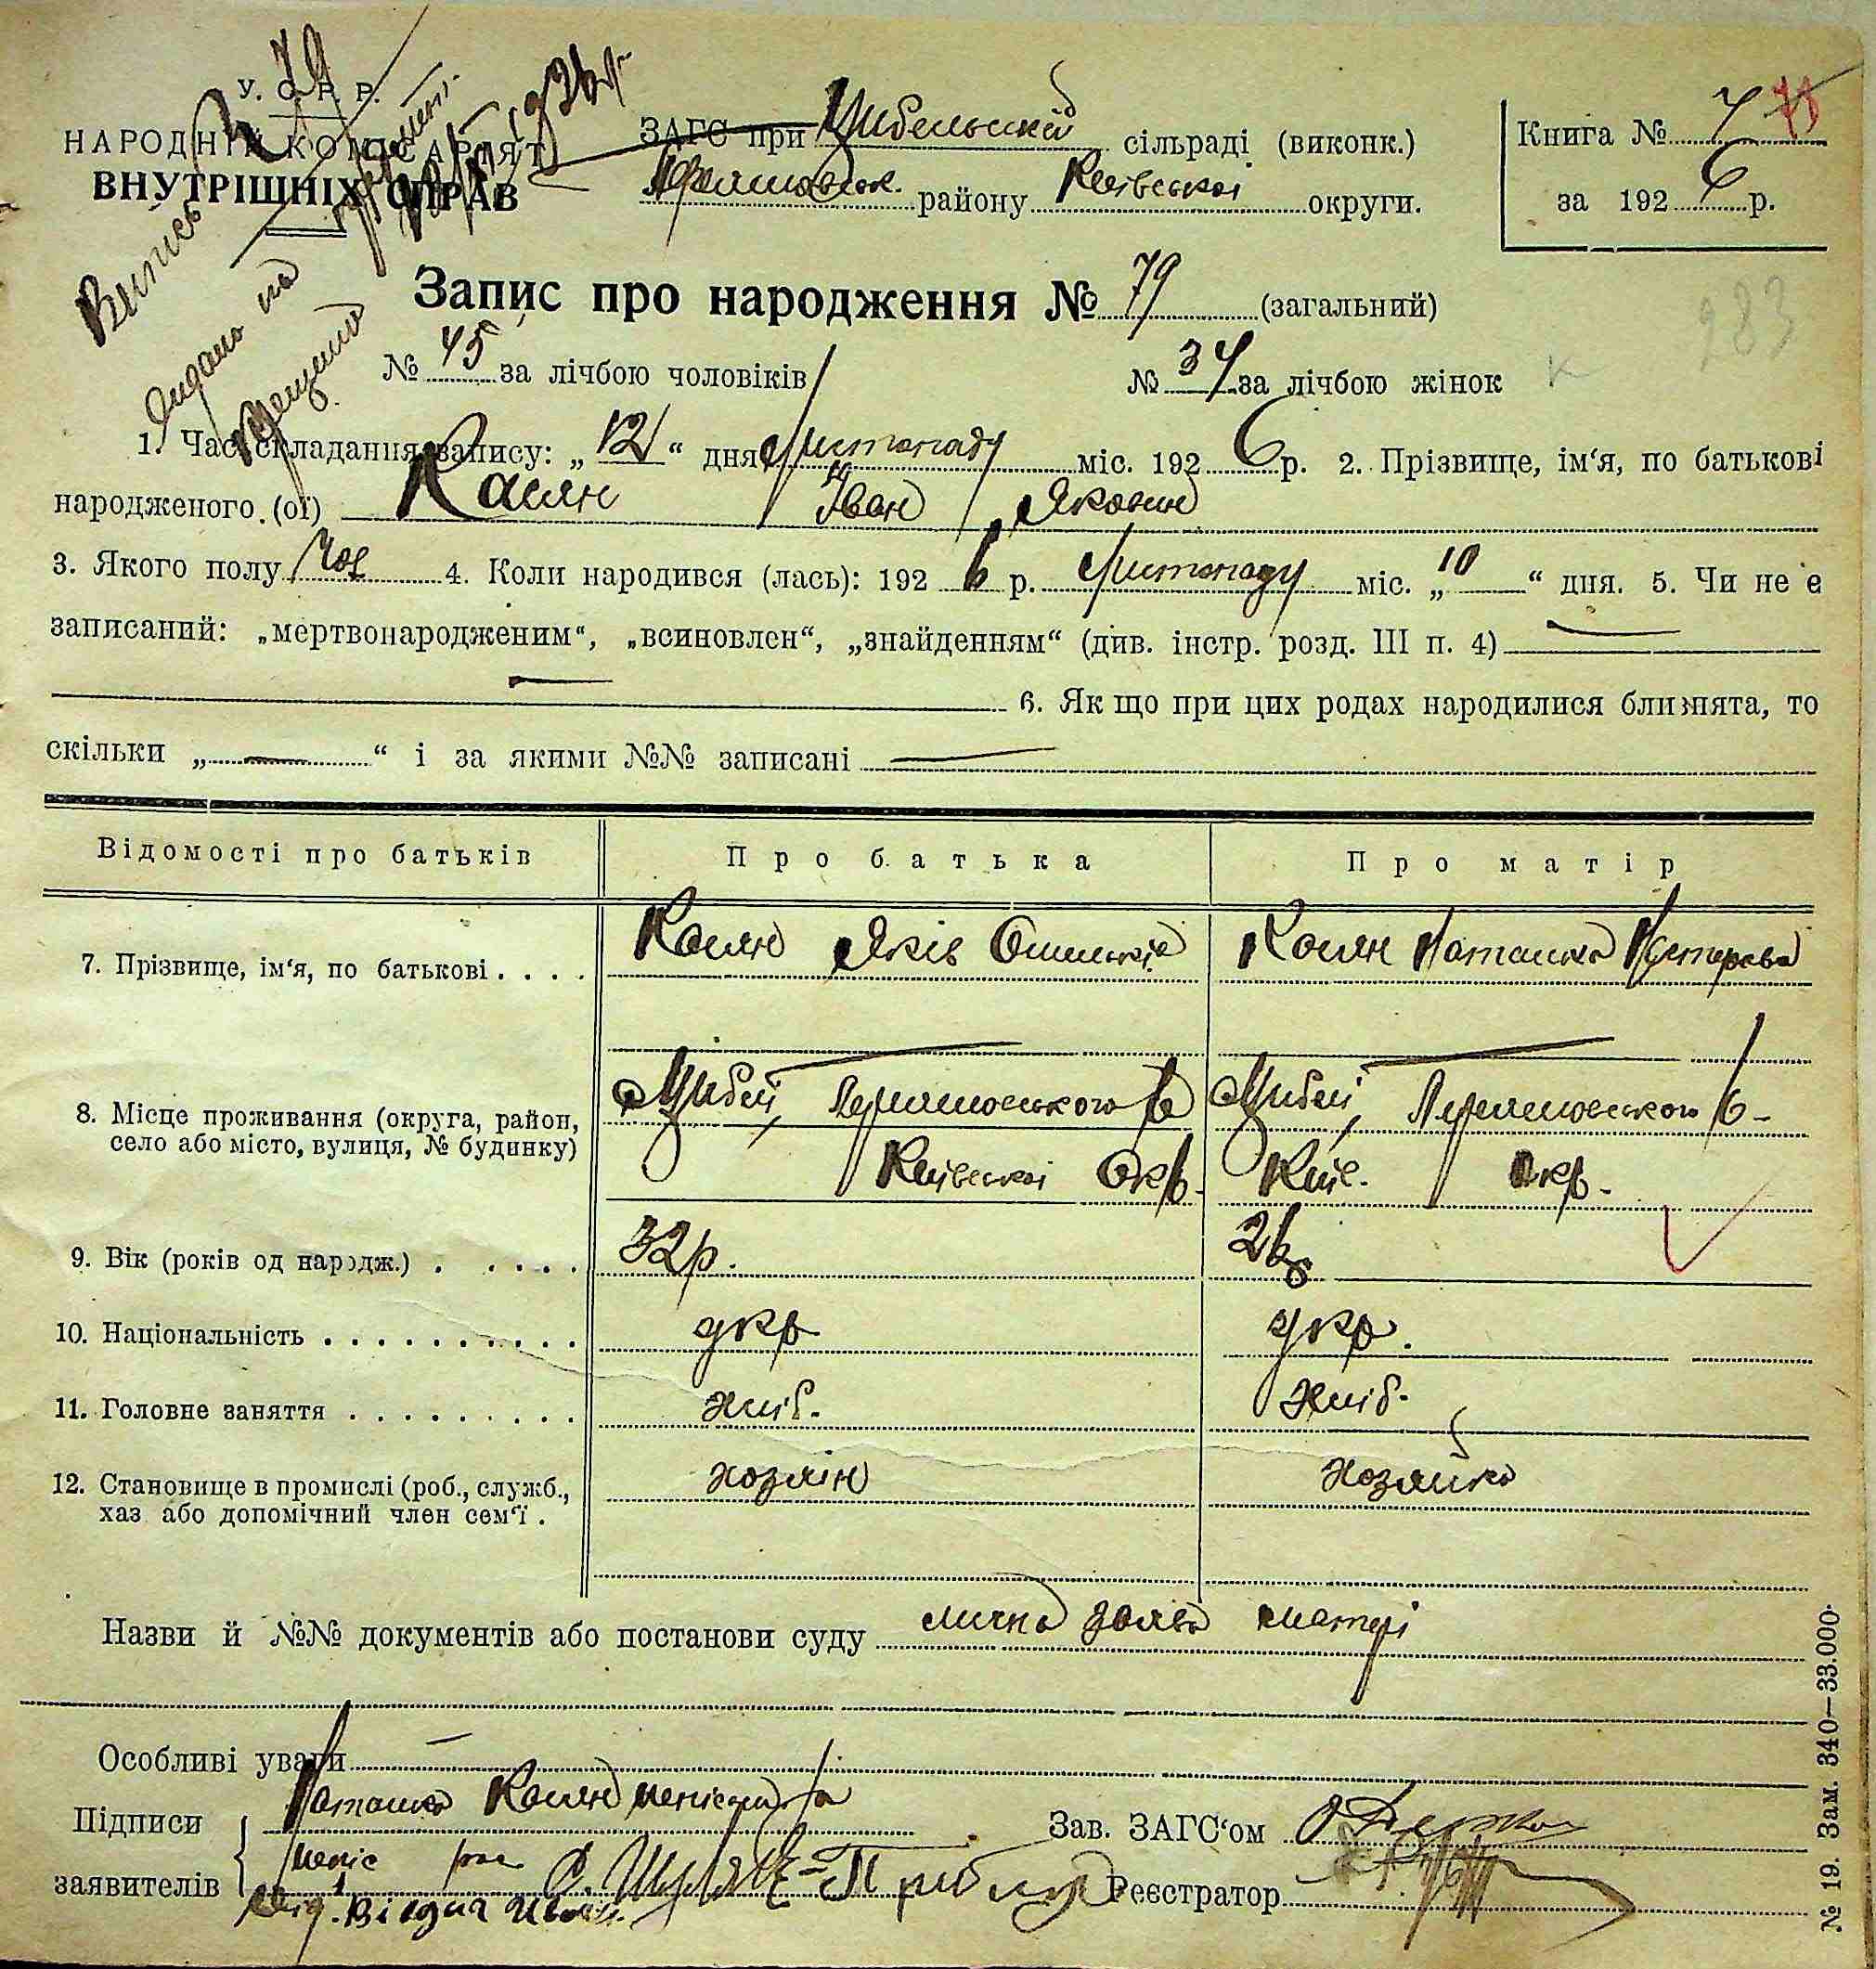 У. С. Р. Р.
НАРОДНІЙ КОМІСАРІЯТ
ВНУТРІШНІХ СПРАВ
Випись № 79
видано на
ЗАГС при Цибельській сільраді (виконк.)
району Київської округи.
Книга № 7 75
за 1926 р.
283
Запис про народження № 79 (загальний)
№ 45 за лічбою чоловіків
№ 34 за лічбою жінок
1. Час складання запису: „12“ дня Листопаду міс. 1926 р. 2. Прізвище, ім'я, по батькові
народженого (ої) Касян Іван Яковин
3. Якого полу чол 4. Коли народився (лась): 1926 р. Листопаду міс. „10“ дня. 5. Чи не є
записаний: „мертвонародженим“, „всиновлен“, „знайденням“ (див. інстр. розд. III п. 4)
6. Як що при цих родах народилися близнята, то
скільки „ “ і за якими №№ записані
Відомості про батьків
Про батька
Про матір
7. Прізвище, ім'я, по батькові . . . .
Касян Яків
Касян Наташка Нестерова
8. Місце проживання (округа, район,
село або місто, вулиця, № будинку)
Цибелі, Переяславського р
Київської Окр.
Цибелі, Переяславського р-
Київ. Окр.
9. Вік (років од народж.) . . . . .
32 р.
26
10. Національність . . . . . . . . . .
укр
укр.
11. Головне заняття . . . . . . . . .
хліб.
хліб.
12. Становище в промислі (роб., служб.,
хаз або допомічний член сем'ї .
хозяін
хозяйка
Назви й №№ документів або постанови суду лична заява матері
Особливі уваги
Підписи
заявителів
Наташка Касян неписьм
Зав. ЗАГС'ом
Реєстратор
№ 19. Зам. 340—33.000.